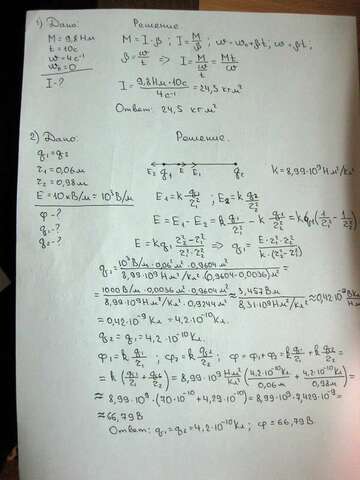 1) Дано: Решение
M = 9,8 Нм M = I·β ; I = M/β ; ω = ω₀ + βt ; ω = βt ;
t = 10 с
ω = 4 с⁻¹ β = ω/t ⇒ I = M/(ω/t) = Mt/ω
ω₀ = 0
I - ? I = 9,8 Нм · 10с / 4 с⁻¹ = 24,5 кг м²
Ответ: 24,5 кг м²
2) Дано: Решение.
q₁ = q₂
r₁ = 0,06 м E₂ q₁ E E₁ q₂ K = 8,99·10⁹ Н м²/Кл²
r₂ = 0,98 м
E = 10 кВ/м = 10³ В/м E₁ = k q₁/r₁² ; E₂ = k q₂/r₂²
φ - ? E = E₁ - E₂ = k q₁/r₁² - k q₂/r₂² = kq₁(1/r₁² - 1/r₂²)
q₁ - ?
q₂ - ? E = kq₁ (r₂² - r₁²)/(r₁² · r₂²) ⇒ q₁ = E · r₁² · r₂² / k · (r₂² - r₁²)
q₁ = 10³ В/м · 0,06² м² · 0,9604 м² / 8,99·10⁹ Н м²/Кл² · (0,9604 - 0,0036) м² =
= 1000 В/м · 0,0036 м² · 0,9604 м² / 8,99·10⁹ Н м²/Кл² · 0,9244 м² ≈ 3,457 В м / 8,31·10⁹ Н м²/Кл² ≈ 0,42·10⁻⁹
= 0,42·10⁻⁹ Кл = 4,2·10⁻¹⁰ Кл.
q₂ = q₁ = 4,2·10⁻¹⁰ Кл.
φ₁ = k q₁/r₁ ; φ₂ = k q₂/r₂ ; φ = φ₁ + φ₂ = k q₁/r₁ + k q₂/r₂ =
= k (q₁/r₁ + q₂/r₂) = 8,99·10⁹ Н м²/Кл² (4,2·10⁻¹⁰ Кл / 0,06 м + 4,2·10⁻¹⁰ Кл / 0,98 м) =
≈ 8,99·10⁹ · (70·10⁻¹⁰ + 4,29·10⁻¹⁰) = 8,99·10⁹ · 7,429·10⁻⁹ =
≈ 66,79 В
Ответ: q₁ = q₂ = 4,2·10⁻¹⁰ Кл ; φ = 66,79 В.